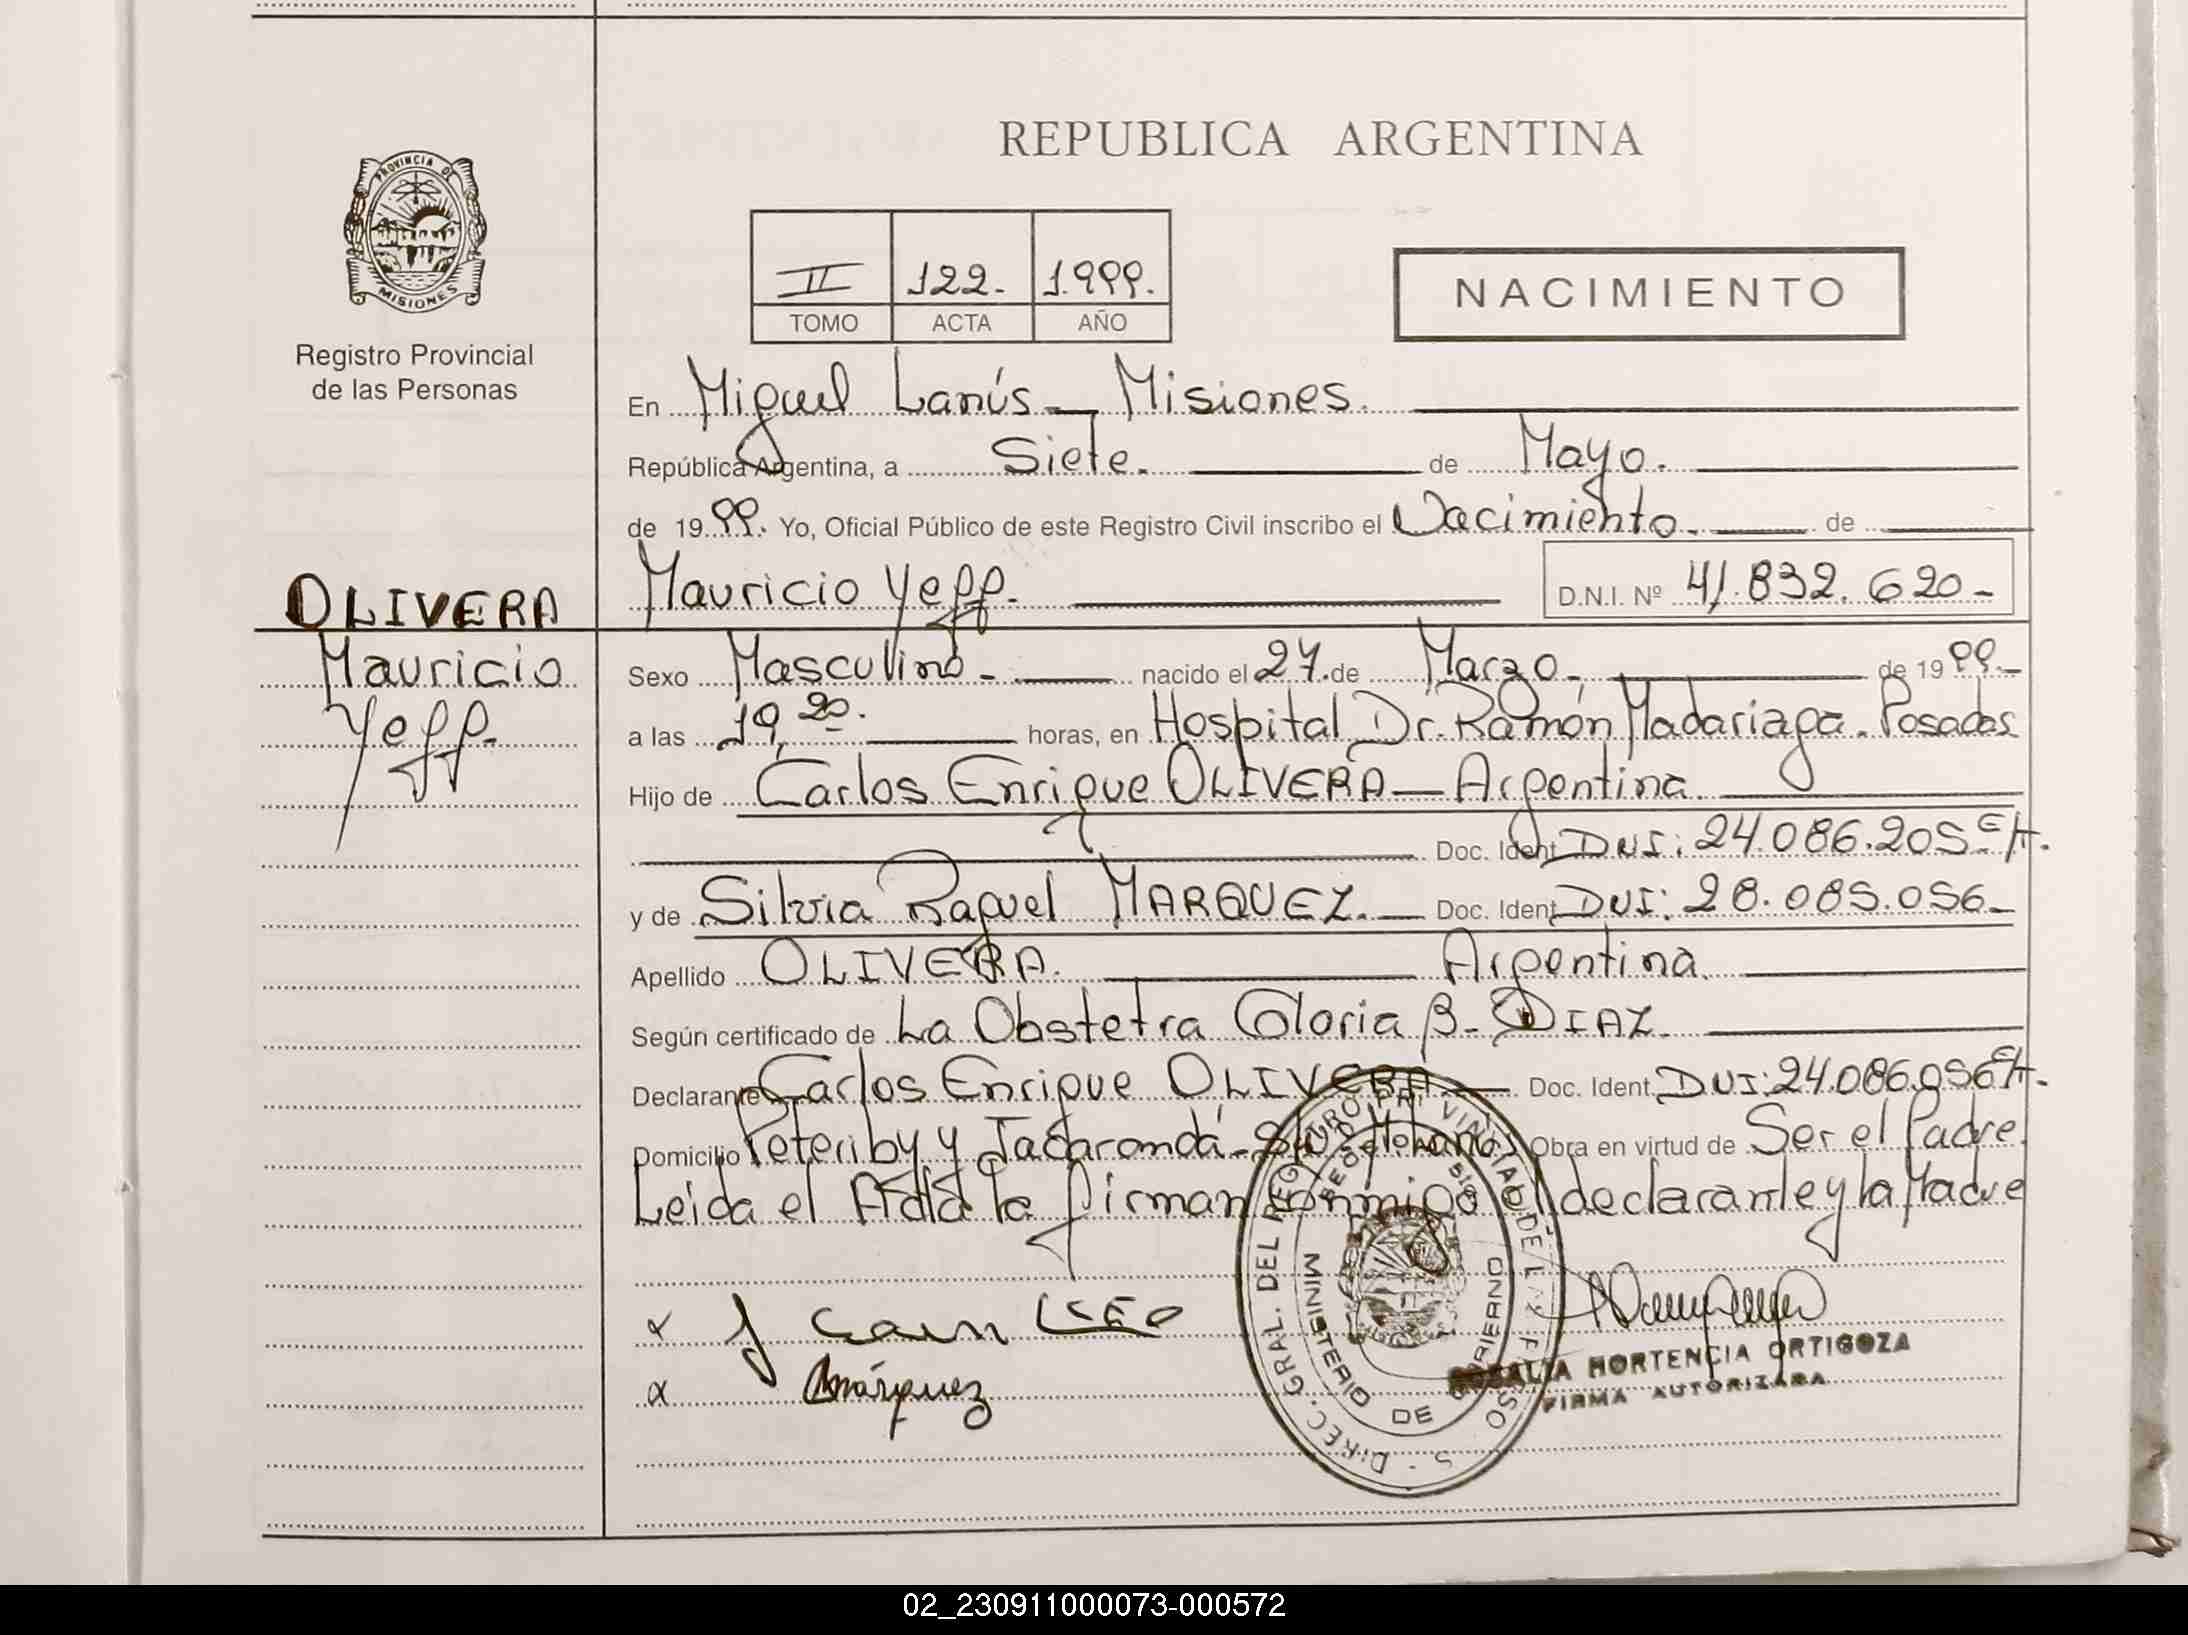 REPUBLICA ARGENTINA
PROVINCIA DE
MISIONES
Registro Provincial
de las Personas
II 122. 1.999.
TOMO ACTA AÑO
NACIMIENTO
En Miguel Lanús - Misiones.
República Argentina, a Siete. de Mayo.
de 1999. Yo, Oficial Público de este Registro Civil inscribo el Nacimiento. de
OLIVERA
Mauricio Yeff.
Mauricio Yeff. D.N.I. Nº 41.832.620-
Sexo Masculino - nacido el 27 de Marzo - de 1999.-
a las 19,20. horas, en Hospital Dr. Ramón Madariaga - Posadas
Hijo de Carlos Enrique OLIVERA - Argentina
Doc. Ident. DNI: 24.086.205 - EH.
y de Silvia Raquel MARQUEZ. - Doc. Ident. DNI: 28.085.056 -
Apellido OLIVERA. Argentina.
Según certificado de La Obstetra Gloria B. DIAZ.
Declarante Carlos Enrique OLIVERA - Doc. Ident. DNI: 24.086.056 EH.
Domicilio Peteriby y Jacarandá - Obra en virtud de Ser el Padre.
Leida el Acta la firman conmigo el declarante y la Madre
Márquez
DIREC. GRAL. DEL REGISTRO PROVINCIAL DE LAS PERSONAS
MINISTERIO DE GOBIERNO
ROSALIA HORTENCIA ORTIGOZA
FIRMA AUTORIZADA
02_230911000073-000572